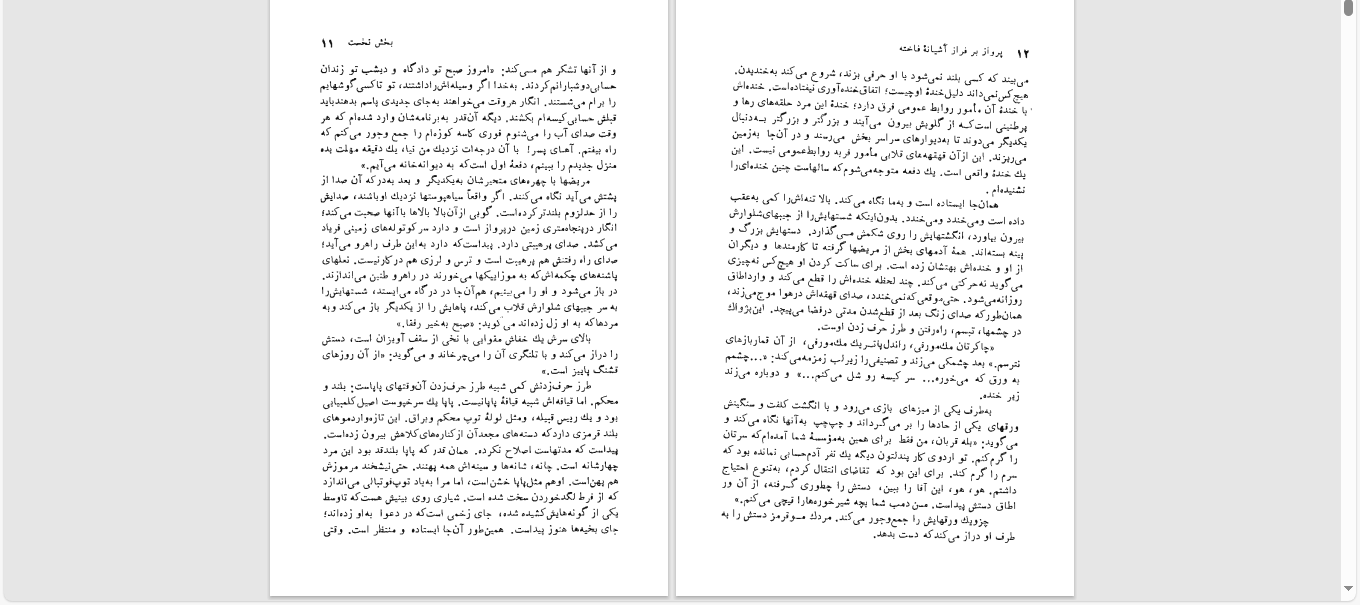 بخش نخست ۱۱
و از آنها تشکر هم می‌کند: «امروز صبح تو دادگاه و دیشب تو زندان
حسابی دوشبارانم کردند. به‌خدا اگر وسیله‌اش را داشتند، تو تاکسی گوشهایم
را برام می‌شستند. انگار هروقت می‌خواهند به‌جای جدیدی پاسم بدهند باید
قبلش حسابی کیسه‌ام بکشند. دیگه آن‌قدر به‌برنامه‌شان وارد شده‌ام که هر
وقت صدای آب را می‌شنوم فوری کاسه کوزه‌ام را جمع وجور می‌کنم که
راه بیفتم. آهای پسر! با آن درجه‌ات نزدیك من نیا، یك دقیقه مهلت بده
منزل جدیدم را ببینم، دفعهٔ اول است‌که به دیوانه‌خانه می‌آیم.»
مریضها با چهره‌های متحیرشان به‌یکدیگر و بعد به‌درکه آن صدا از
پشتش می‌آید نگاه می‌کنند. اگر واقعاً سیاهپوستها نزدیك او باشند، صدایش
را از حدلزوم بلندتر کرده‌است. گویی از آن‌بالا بالاها با آنها صحبت می‌کند؛
انگار در پنجاه‌متری زمین در پرواز است و دارد سر کوتوله‌های زمینی فریاد
می‌کشد. صدای پرهیبتی دارد. پیداست‌که دارد به‌این طرف راهرو می‌آید؛
صدای راه رفتنش هم پرهیبت است و ترس و لرزی هم در کار نیست. نعلهای
پاشنه‌های چکمه‌اش‌که به موزاییکها می‌خورند در راهرو طنین می‌اندازند.
در باز می‌شود و او را می‌بینیم، هم‌آن‌جا در درگاه می‌ایستد، شستهایش‌را
به سر جیبهای شلوارش قلاب می‌کند، پاهایش را از یکدیگر باز می‌کند و به
مردهاکه به او زل زده‌اند می‌گوید: «صبح به‌خیر رفقا.»
بالای سرش یك خفاش مقوایی با نخی از سقف آویزان است، دستش
را دراز می‌کند و با تلنگری آن را می‌چرخاند و می‌گوید: «از آن روزهای
قشنگ پاییز است.»
طرز حرف‌زدنش کمی شبیه طرز حرف‌زدن آن‌وقتهای پاپاست: بلند و
محکم. اما قیافه‌اش شبیه قیافهٔ پاپانیست. پاپا یك سرخپوست اصیل‌کلمبیایی
بود و یك رییس قبیله، ومثل لولهٔ توپ محکم وبراق. این تازه‌وارد موهای
بلند قرمزی دارد که دسته‌های مجعد آن از کناره‌های کلاهش بیرون زده‌است.
پیداست که مدتهاست اصلاح نکرده. همان قدر که پاپا بلندقد بود این مرد
چهارشانه است. چانه، شانه‌ها و سینه‌اش همه پهنند. حتی‌نیشخند مرموزش
هم پهن‌است. او هم مثل‌پاپا خشن‌است، اما مرا به‌یاد توپ‌فوتبالی می‌اندازد
که از فرط لگدخوردن سخت شده است. شیاری روی بینیش هست‌که تا وسط
یکی از گونه‌هایش‌کشیده شده، جای زخمی است‌که در دعوا به‌او زده‌اند؛
جای بخیه‌ها هنوز پیداست. همین‌طور آن‌جا ایستاده و منتظر است. وقتی
۱۲ پرواز بر فراز آشیانهٔ فاخته
می‌بیند که کسی بلند نمی‌شود با او حرفی بزند، شروع می‌کند به‌خندیدن.
هیچ‌کس نمی‌داند دلیل‌خندهٔ اوچیست؛ اتفاق‌خنده‌آوری نیفتاده‌است. خنده‌اش
با خندهٔ آن مأمور روابط عمومی فرق دارد؛ خندهٔ این مرد حلقه‌های رها و
پرطنینی است‌کـه از گلویش بیرون می‌آیند و بزرگتر و بزرگتر بـه‌دنبال
یکدیگر می‌دوند تا به‌دیوارهای سراسر بخش می‌رسند و در آن‌جا به‌زمین
می‌ریزند. این از آن قهقهه‌های قلابی مأمور فربه روابط‌عمومی نیست. این
یك خندهٔ واقعی است. یك دفعه متوجه‌می‌شوم‌که سالهاست چنین خنده‌ای‌را
نشنیده‌ام.
همان‌جا ایستاده است و به‌ما نگاه می‌کند. بالا تنه‌اش‌را کمی به‌عقب
داده است و می‌خندد و می‌خندد. بدون‌اینکه شستهایش‌را از جیبهای‌شلوارش
بیرون بیاورد، انگشتهایش را روی شکمش می‌گذارد. دستهایش بزرگ و
پینه بسته‌اند. همهٔ آدمهای بخش از مریضها گرفته تا کارمندها و دیگران
از او و خنده‌اش بهتشان زده است. برای ساکت کردن او هیچ‌کس نه‌چیزی
می‌گوید نه‌حرکتی می‌کند. چند لحظه خنده‌اش را قطع می‌کند و وارد اطاق
روزانه‌می‌شود. حتی‌موقعی‌که‌نمی‌خندد، صدای قهقه‌اش درهوا موج‌می‌زند،
همان‌طورکه صدای زنگ بعد از قطع‌شدن مدتی درفضا می‌پیچد. این‌پژواك
در چشمها، تبسم، راه‌رفتن و طرز حرف زدن اوست.
«چاکرتان مك‌مورفی، راندل‌پاتریك مك‌مورفی، از آن قماربازهای
نترسم.» بعد چشمکی می‌زند و تصنیفی‌را زیرلب زمزمه‌می‌کند: «...چشمم
به ورق که می‌خوره... سر کیسه رو شل می‌کنم...» و دوباره می‌زند
زیر خنده.
به‌طرف یکی از میزهای بازی می‌رود و با انگشت کلفت و سنگینش
ورقهای یکی از حادها را بر می‌گرداند و چپ‌چپ به‌آنها نگاه می‌کند و
می‌گوید: «بله قربان، من فقط برای همین به‌مؤسسهٔ شما آمده‌ام‌که سرتان
را گرم‌کنم. تو اردوی کار پندلتون دیگه یك نفر آدم‌حسابی نمانده بود که
سرم را گرم کند. برای این بود که تقاضای انتقال کردم، به‌تنوع احتیاج
داشتم. هو، هو، این آقا را ببین، دستش را چطوری گـرفته، از آن ور
اطاق دستش پیداست. مـن دمب شما بچه شیرخوره‌هارا قیچی می‌کنم.»
چزویك ورقهایش را جمع‌وجور می‌کند. مردك مـوقرمز دستش را به
طرف او دراز می‌کندکه دست بدهد.